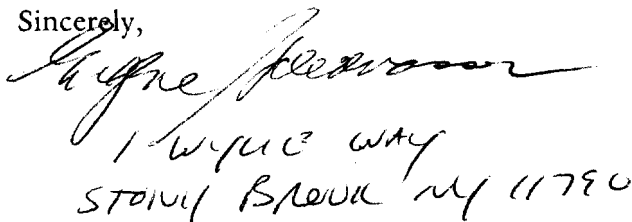 Sincerely,
Eugene
1 WYLIE WAY
STONY BROOK NY 11790